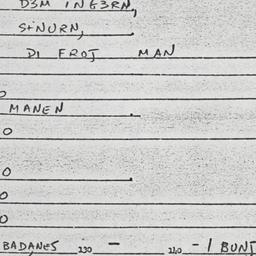 D3M ING3RN,
S+NURN,
DI FROJ MAN
MANEN
O
O
O
O
BADANES 230 – 220 – 1 BUNT